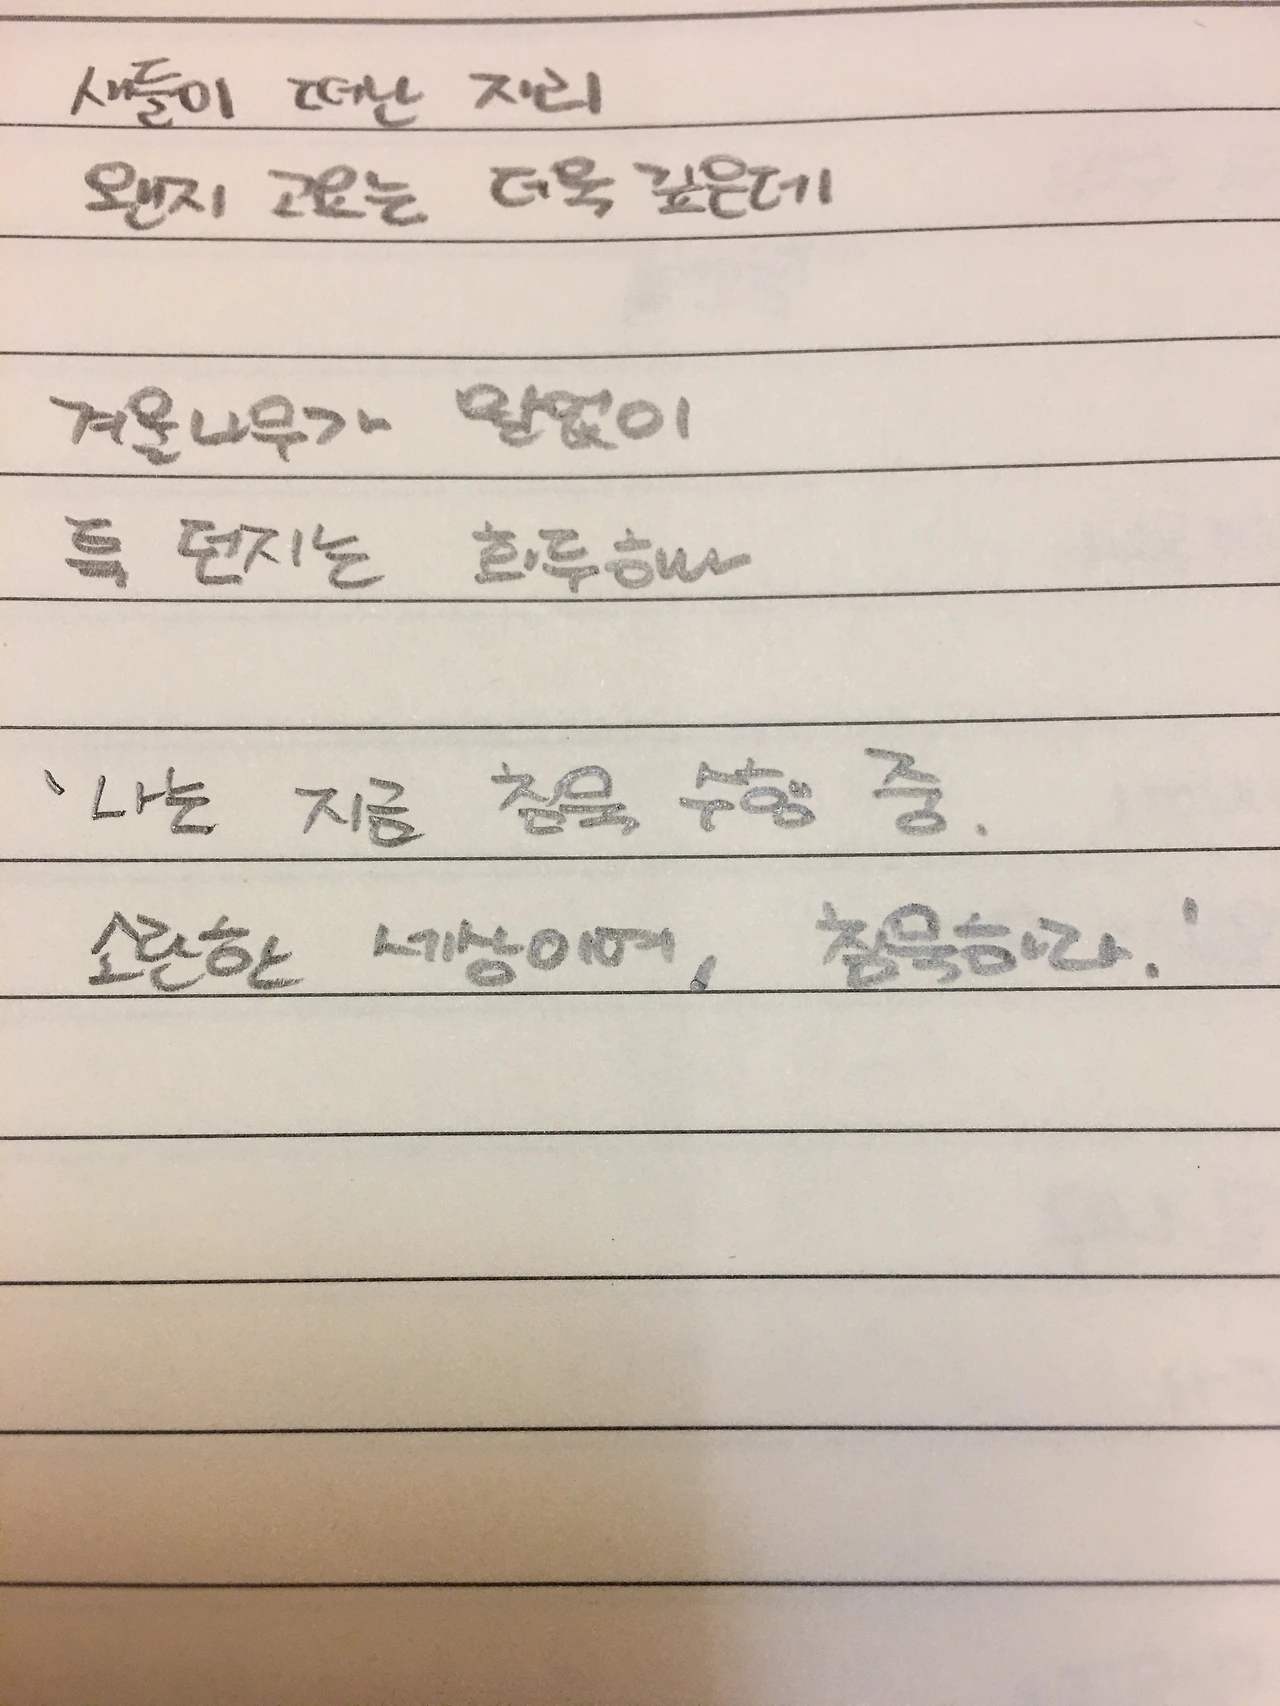 새들이 떠난 자리
왠지 고요는 더욱 깊은데
겨울나무가 말없이
툭 던지는 화두하나
'나는 지금 침묵 수행 중.
소란한 세상이여, 침묵하라.'